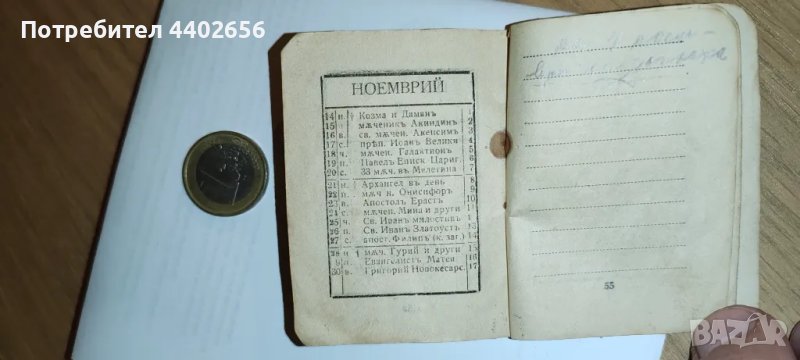 Потребител 4402656
НОЕМВРИЙ
14 н. † Козма и Дамянъ
15 п. мѫченикъ Акиндинъ 2
16 в. св. мѫчен. Акепсим. 3
17 с. прѣп. Иоанъ Велики 4
18 ч. мѫчен. Галактионъ 5
19 п. Павелъ Еписк Цариг. 6
20 с. 33 мѫч. въ Милетина 7
21 н. Архангел въ день 8
22 п. мѫч н. Онисифоръ 9
23 в. Апостолъ Ерастъ 10
24 с. мѫчен. Мина и други 11
25 ч. Св. Иоанъ милостивъ
26 п. Св. Иван Златоустъ 13
27 с. апост. Филипъ (к. заг.) 14
28 н † мѫч. Гурий и други 15
9 п. Евангелистъ Матеа 16
30 в. Григорий Новокесарс. 17
55
BAZAR